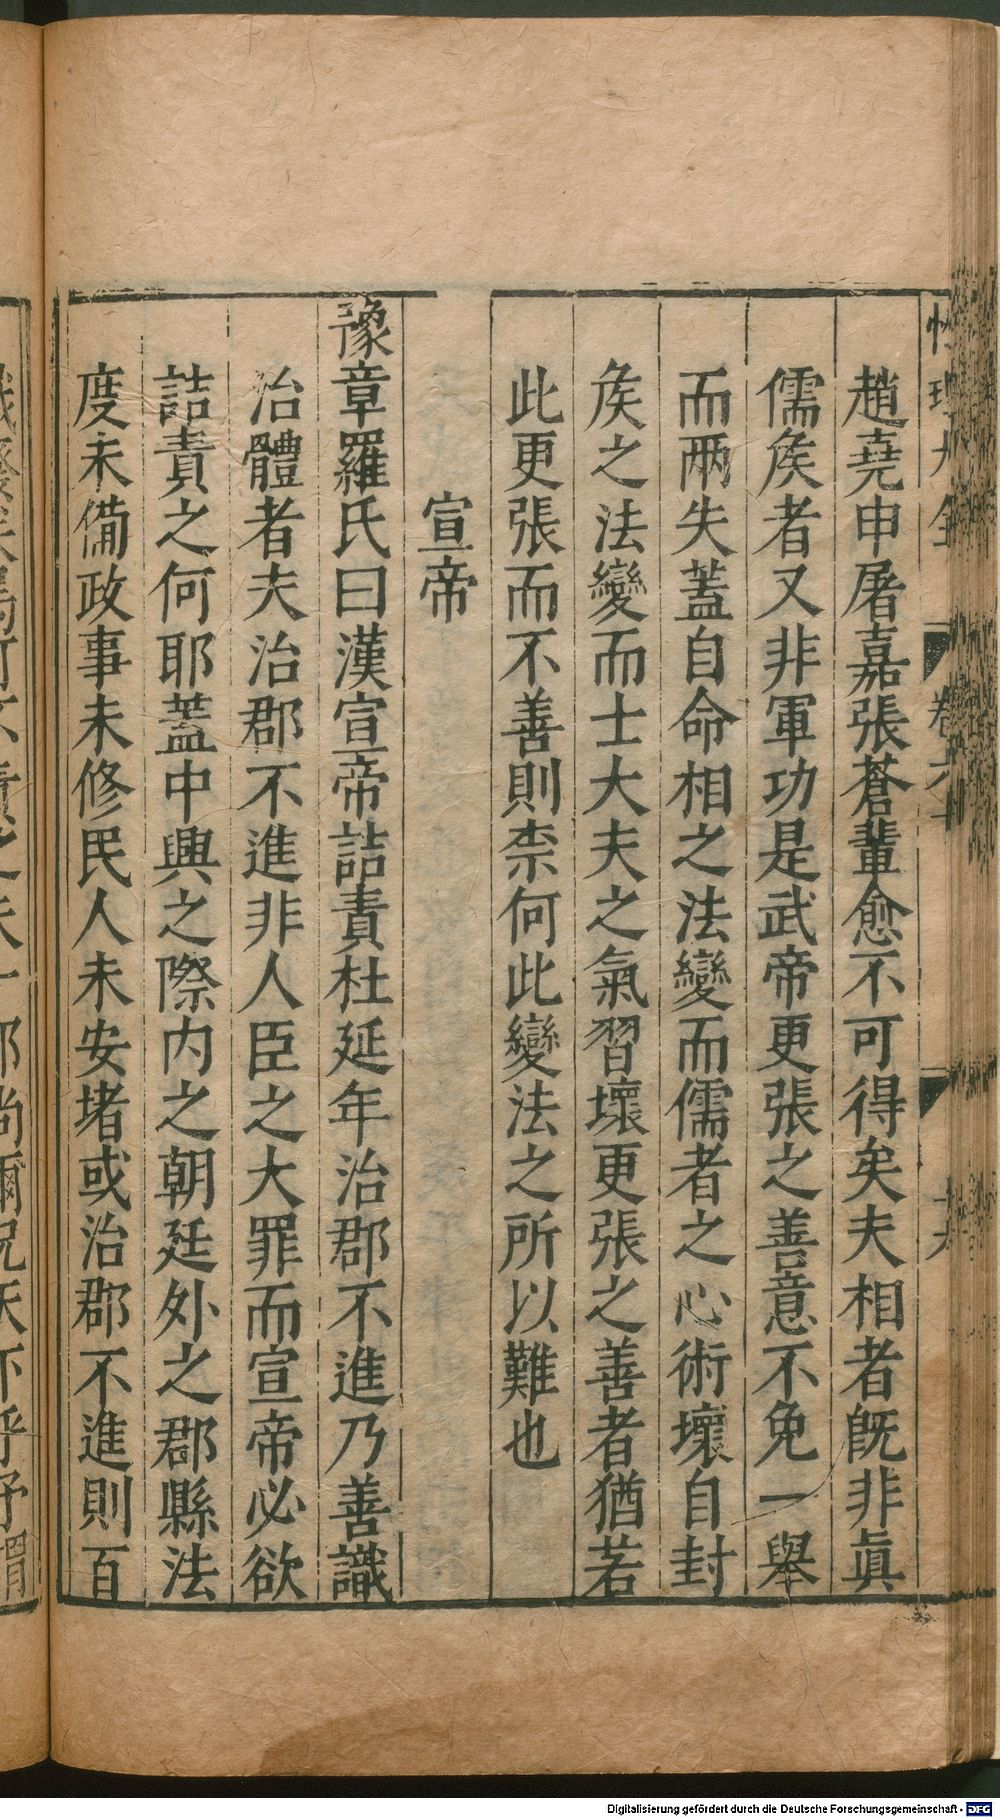 趙堯申屠嘉張蒼輩愈不可得矣夫相者旣非眞
儒矦者又非軍功是武帝更張之善意不免一舉
而兩失蓋自命相之法變而儒者之心術壞自封
矦之法變而士大夫之氣習壞更張之善者猶若
此更張而不善則柰何此變法之所以難也
宣帝
豫章羅氏曰漢宣帝詰責杜延年治郡不進乃善識
治體者夫治郡不進非人臣之大罪而宣帝必欲
詰責之何耶蓋中興之際内之朝廷外之郡縣法
度未備政事未修民人未安堵或治郡不進則百
Digitalisierung gefördert durch die Deutsche Forschungsgemeinschaft - DFG